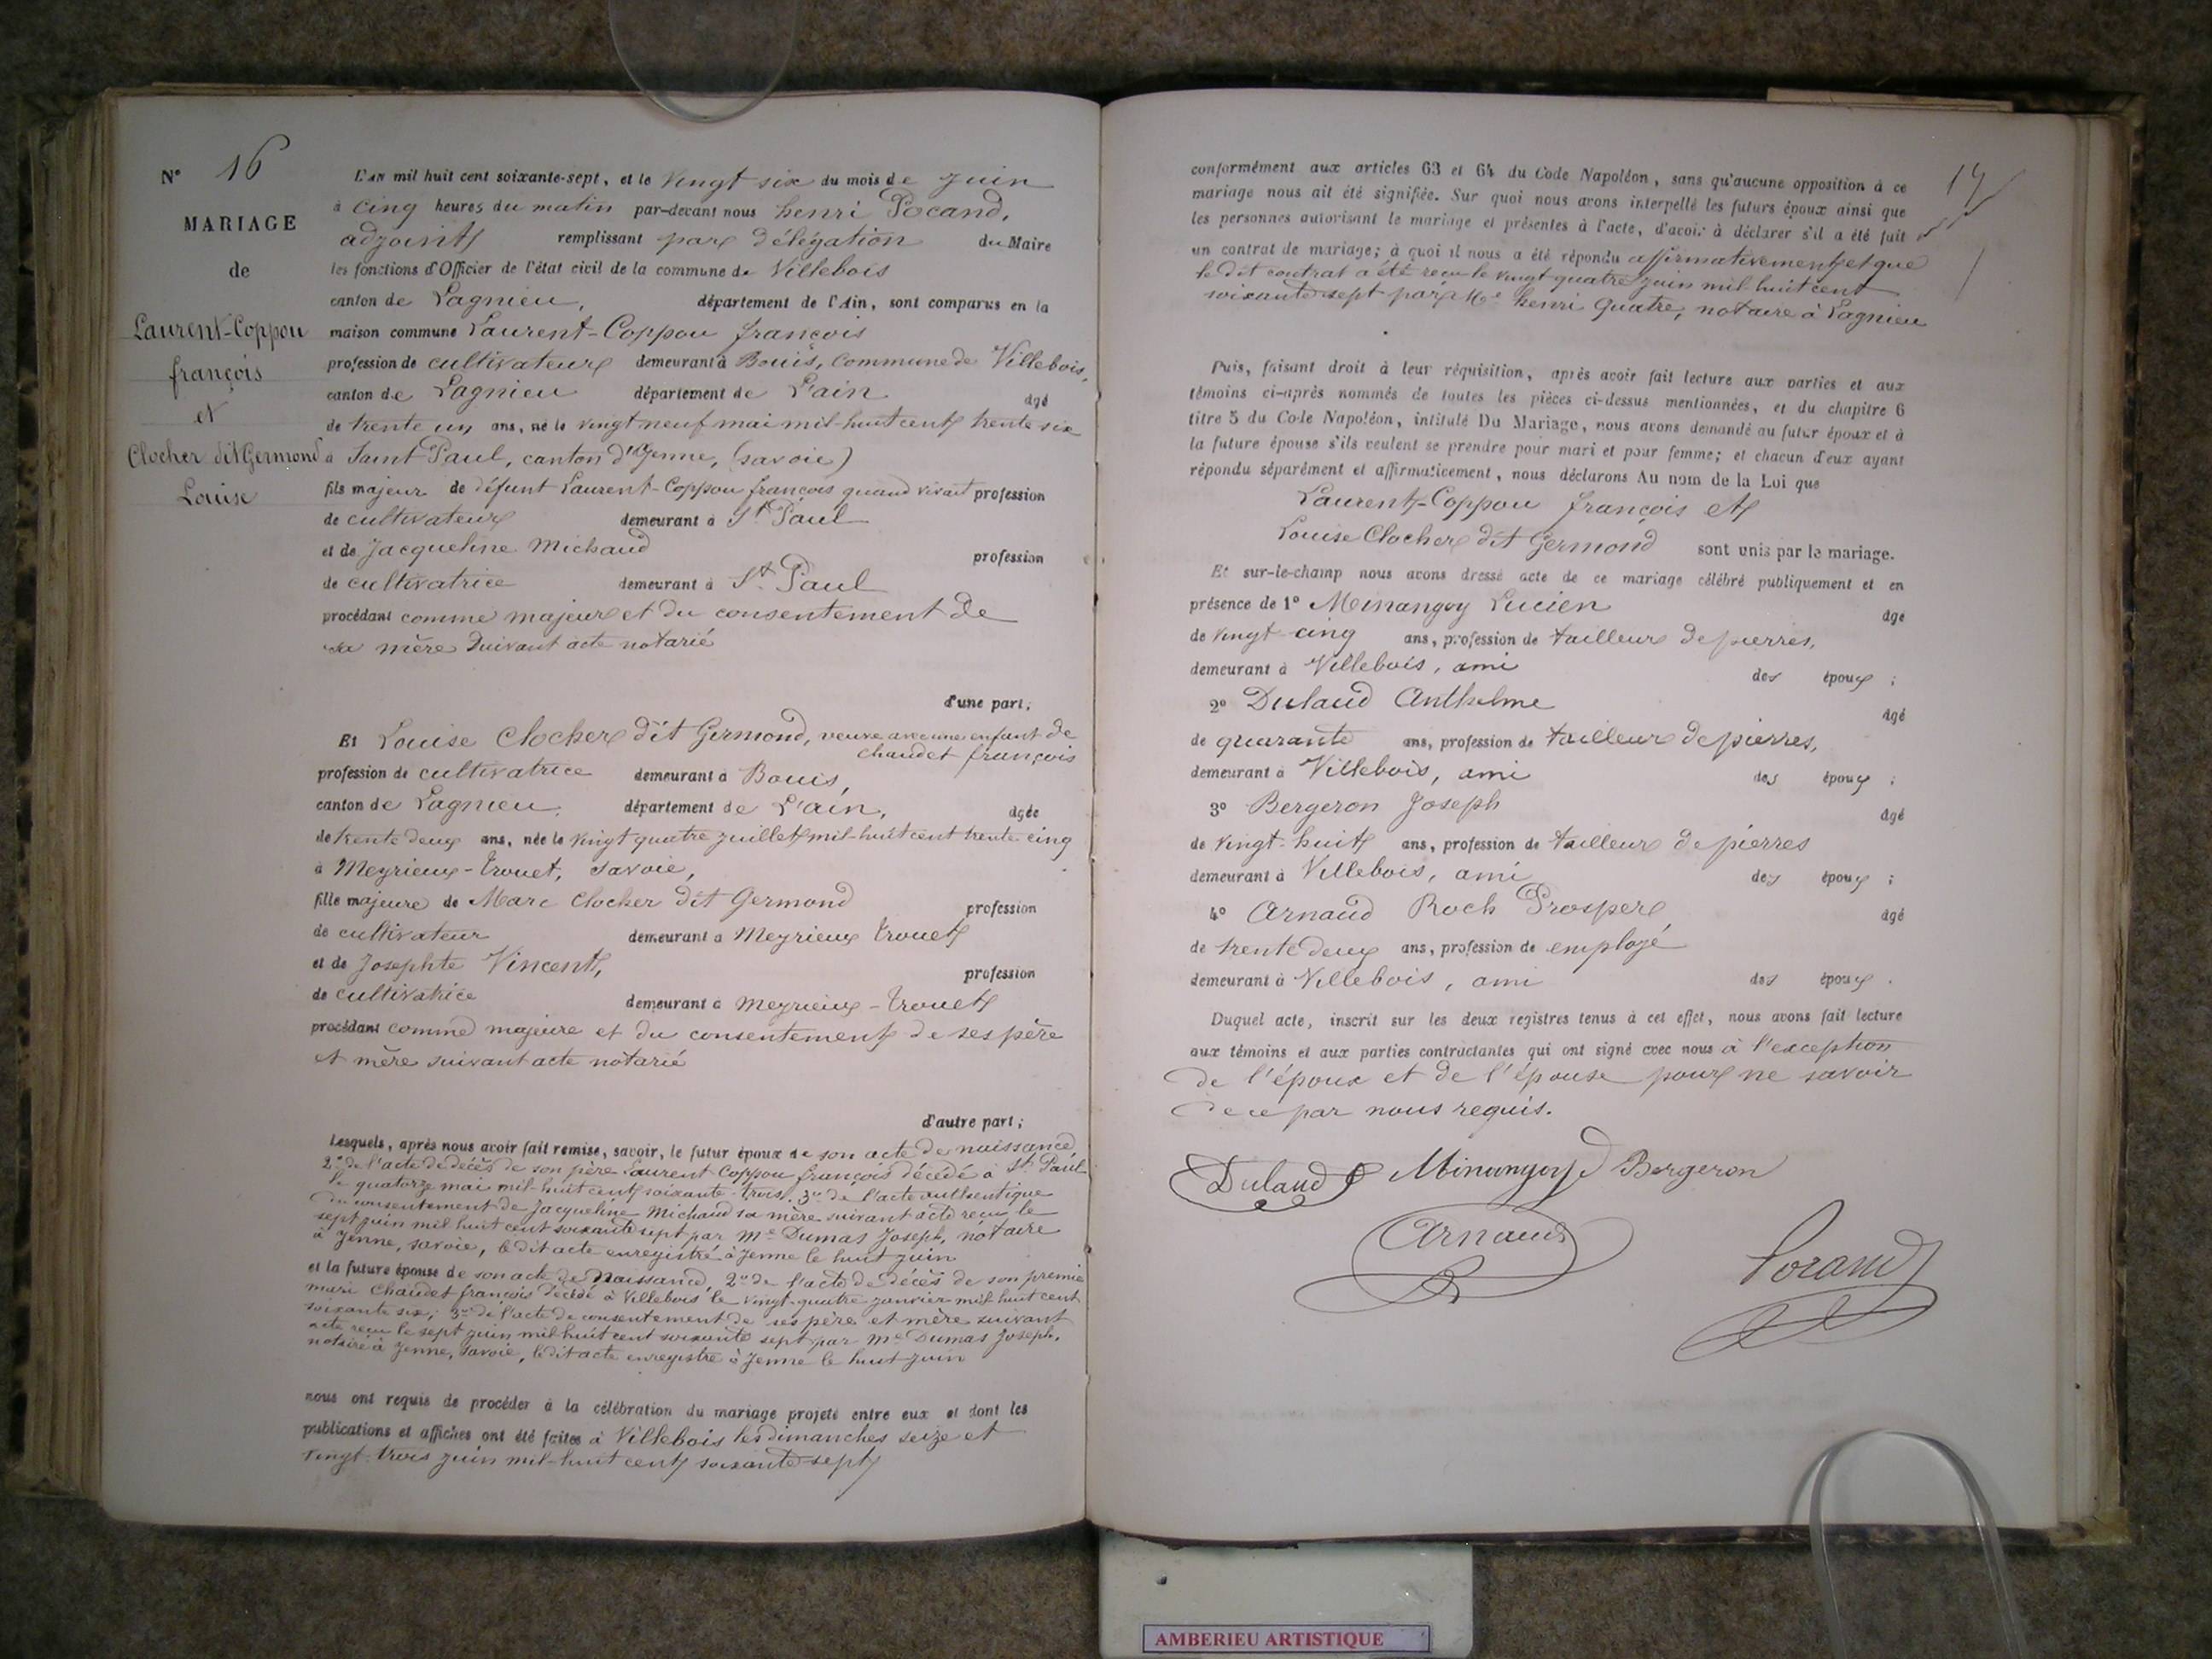 N° 16
MARIAGE
de
Laurent-Coppou
françois
et
Clocher dit Germond
Louise
L'an mil huit cent soixante-sept, et le vingt six du mois de juin
à cinq heures du matin par-devant nous henri Pocand,
adjoint remplissant par délégation du Maire
les fonctions d'Officier de l'état civil de la commune de Villebois
canton de Lagnieu, département de l'Ain, sont comparus en la
maison commune Laurent-Coppou françois
profession de cultivateur demeurant à Bouis, commune de Villebois,
canton de Lagnieu département de L'ain âgé
de trente un ans, né le vingt neuf mai mil-huit cent trente six
à Saint Paul, canton d'Yenne, (savoie)
fils majeur de défunt Laurent-Coppou françois quand vivait profession
de cultivateur demeurant à St Paul
et de Jacqueline Michaud profession
de cultivatrice demeurant à St Paul
procédant comme majeur et du consentement de
sa mère suivant acte notarié
d'une part;
Et Louise Clocher dit Germond, veuve avec une enfant de
chaudet françois
profession de cultivatrice demeurant à Bouis,
canton de Lagnieu, département de L'ain, âgée
de trente deux ans, née le vingt quatre juillet mil-huit cent trente cinq
à Meyrieux-trouet, savoie,
fille majeure de Marc Clocher dit Germond profession
de cultivateur demeurant à Meyrieux trouet
et de Josephte Vincent, profession
de cultivatrice demeurant à meyrieux-trouet
procédant comme majeure et du consentement de ses père
et mère suivant acte notarié
d'autre part;
Lesquels, après nous avoir fait remise, savoir, le futur époux de son acte de naissance
2° de l'acte de décès de son père Laurent Coppou françois décédé à St Paul
le quatorze mai mil-huit cent soixante-trois. 3° de l'acte authentique
du consentement de Jacqueline Michaud sa mère suivant acte reçu le
sept juin mil huit cent soixante sept par Me Dumas Joseph, notaire
à Yenne, savoie, le dit acte enregistré à Yenne le huit juin
et la future épouse de son acte de Naissance, 2° de l'acte de décès de son premier
mari Chaudet françois décédé à Villebois le vingt-quatre janvier mil huit cent
soixante six; 3° de l'acte de consentement de ses père et mère suivant
acte reçu le sept juin mil huit cent soixante sept par Me Dumas Joseph,
notaire à Yenne, savoie, ledit acte enregistré à Yenne le huit juin
nous ont requis de procéder à la célébration du mariage projeté entre eux et dont les
publications et affiches ont été faites à Villebois les dimanches seize et
vingt-trois juin mil-huit cent soixante-sept
conformément aux articles 63 et 64 du Code Napoléon, sans qu'aucune opposition à ce
mariage nous ait été signifiée. Sur quoi nous avons interpellé les futurs époux ainsi que
les personnes autorisant le mariage et présentes à l'acte, d'avoir à déclarer s'il a été fait
un contrat de mariage; à quoi il nous a été répondu affirmativement et que
le dit contrat a été reçu le vingt quatre juin mil huit cent
soixante sept par Me henri Quatre, notaire à Lagnieu
Puis, faisant droit à leur réquisition, après avoir fait lecture aux parties et aux
témoins ci-après nommés de toutes les pièces ci-dessus mentionnées, et du chapitre 6
titre 5 du Code Napoléon, intitulé Du Mariage, nous avons demandé au futur époux et à
la future épouse s'ils veulent se prendre pour mari et pour femme; et chacun d'eux ayant
répondu séparément et affirmativement, nous déclarons Au nom de la Loi que
Laurent-Coppou françois et
Louise Clocher dit Germond sont unis par le mariage.
Et sur-le-champ nous avons dressé acte de ce mariage célébré publiquement et en
présence de 1° Minangoy Lucien âgé
de vingt-cinq ans, profession de tailleur de pierres,
demeurant à Villebois, ami des époux;
2° Dulaud Anthelme âgé
de quarante ans, profession de tailleur de pierres,
demeurant à Villebois, ami des époux;
3° Bergeron Joseph âgé
de vingt-huit ans, profession de tailleur de pierres
demeurant à Villebois, ami des époux;
4° Arnaud Roch Prosper âgé
de trente deux ans, profession de employé
demeurant à Villebois, ami des époux.
Duquel acte, inscrit sur les deux registres tenus à cet effet, nous avons fait lecture
aux témoins et aux parties contractantes qui ont signé avec nous à l'exception
de l'époux et de l'épouse pour ne savoir
de ce par nous requis.
Dulaud Minangoy Bergeron
Arnaud
Pocand
AMBERIEU ARTISTIQUE